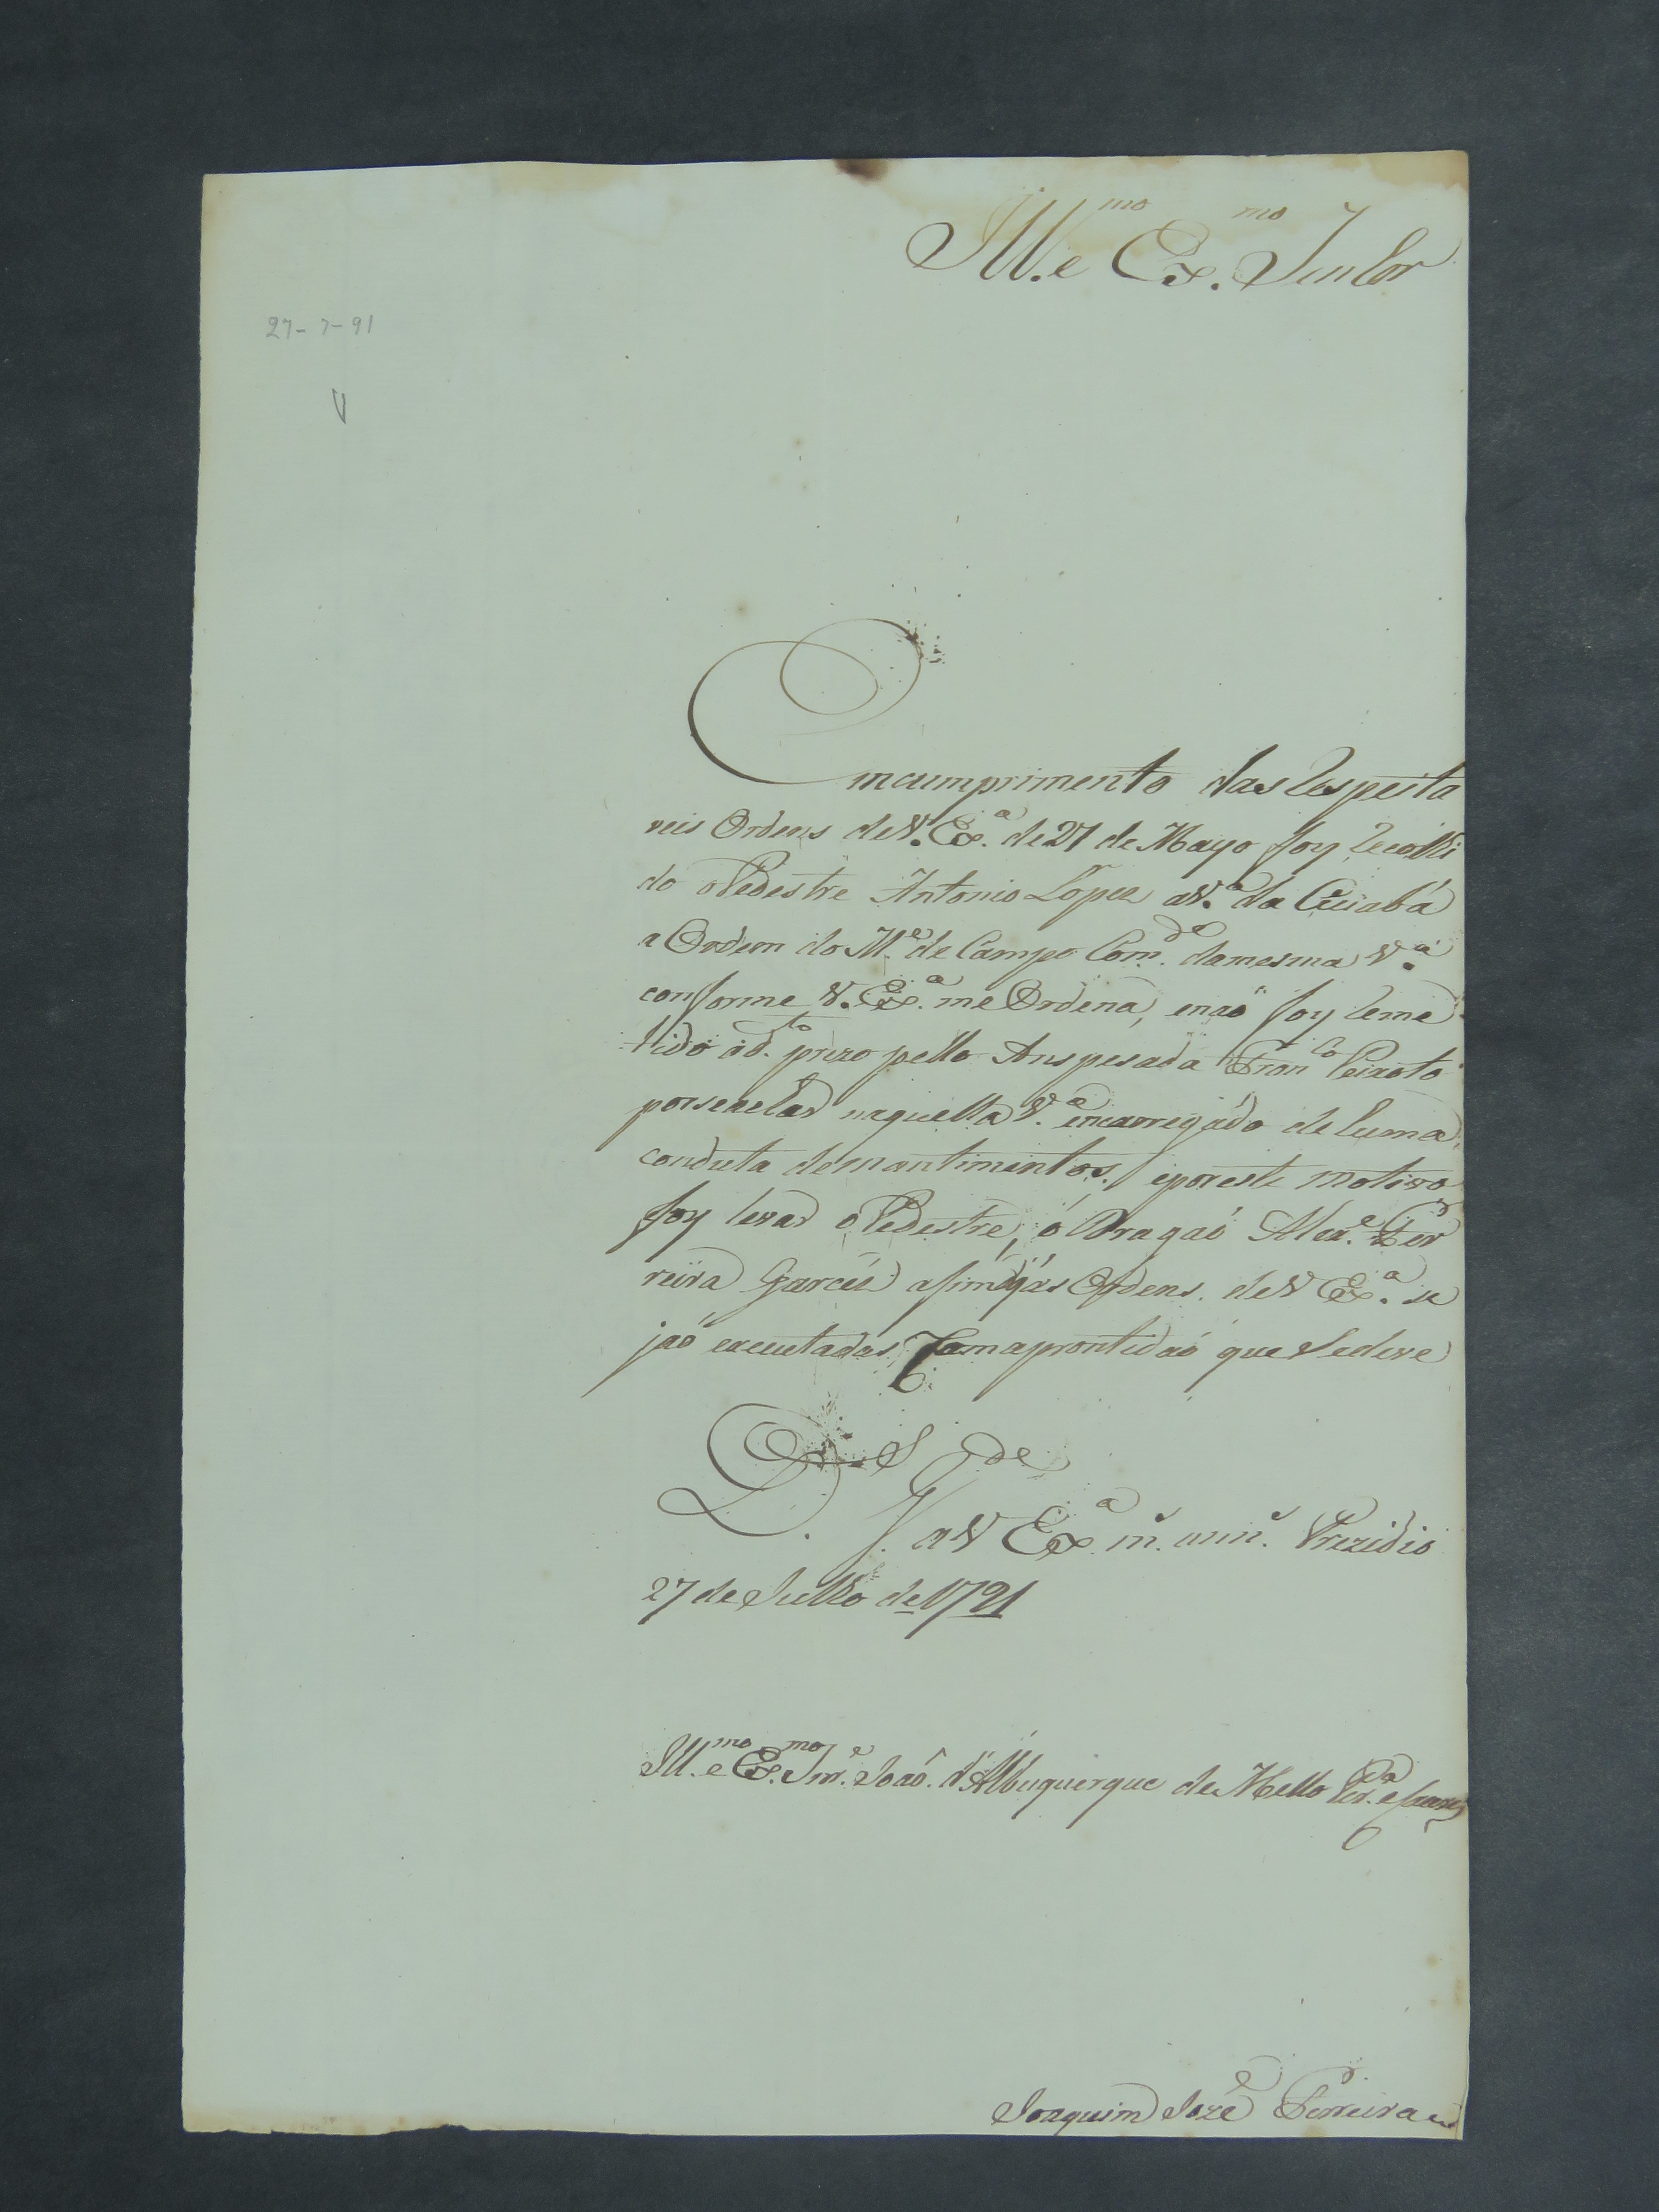 Ill.mo e Ex.mo Senhor
27-7-91
V
Em cumprimento das Respeita
veis Ordens de V. Ex.a de 27 de Mayo foy Recolhi
do o Pedestre Antonio Lopez a V.a da Cuiabá
a Ordem do M.e de Campo Com.de da mesma V.a
conforme V. Ex.a me Ordena, e naõ foy Reme
tido o d.to prezo pello Anspesada Fran.co Peixoto
por se achar naquella V.a encarregádo de huma
conduta de mantimentos, e por este motivo
foy levar o Pedestre, o Dragaõ Alex.e Fer
reira Garcéz afim q̃ as Ordens de V Ex.a se
jaõ executadas Com a prontidaõ que Se deve
D.s g.de
a V Ex.a m.s ann.s Prezidio
27 de Julho de 1791
Ill.mo e Ex.mo Snr.e Joaõ d'Albuquerque de Mello Per.a e Caceres
Joaquim Jozé Ferreira